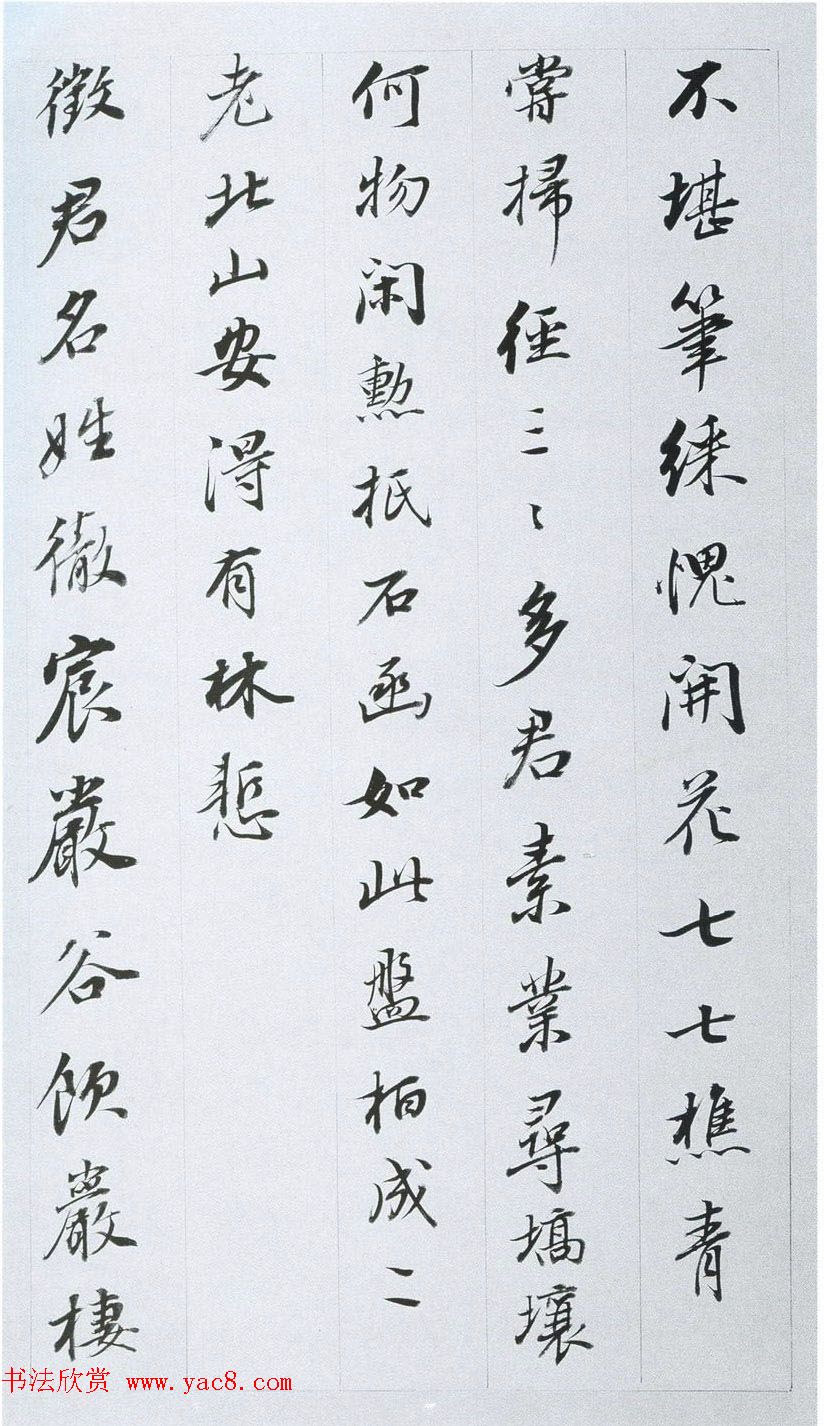 不堪筆綵愧開花七七樵青
嘗掃徑三〻多君素業尋墑壤
何物閑勲扺石函如此盤桓成二
老北山安得有林慙
徵君名姓徹宸嚴谷飲巖棲
书法欣赏 www.yac8.com